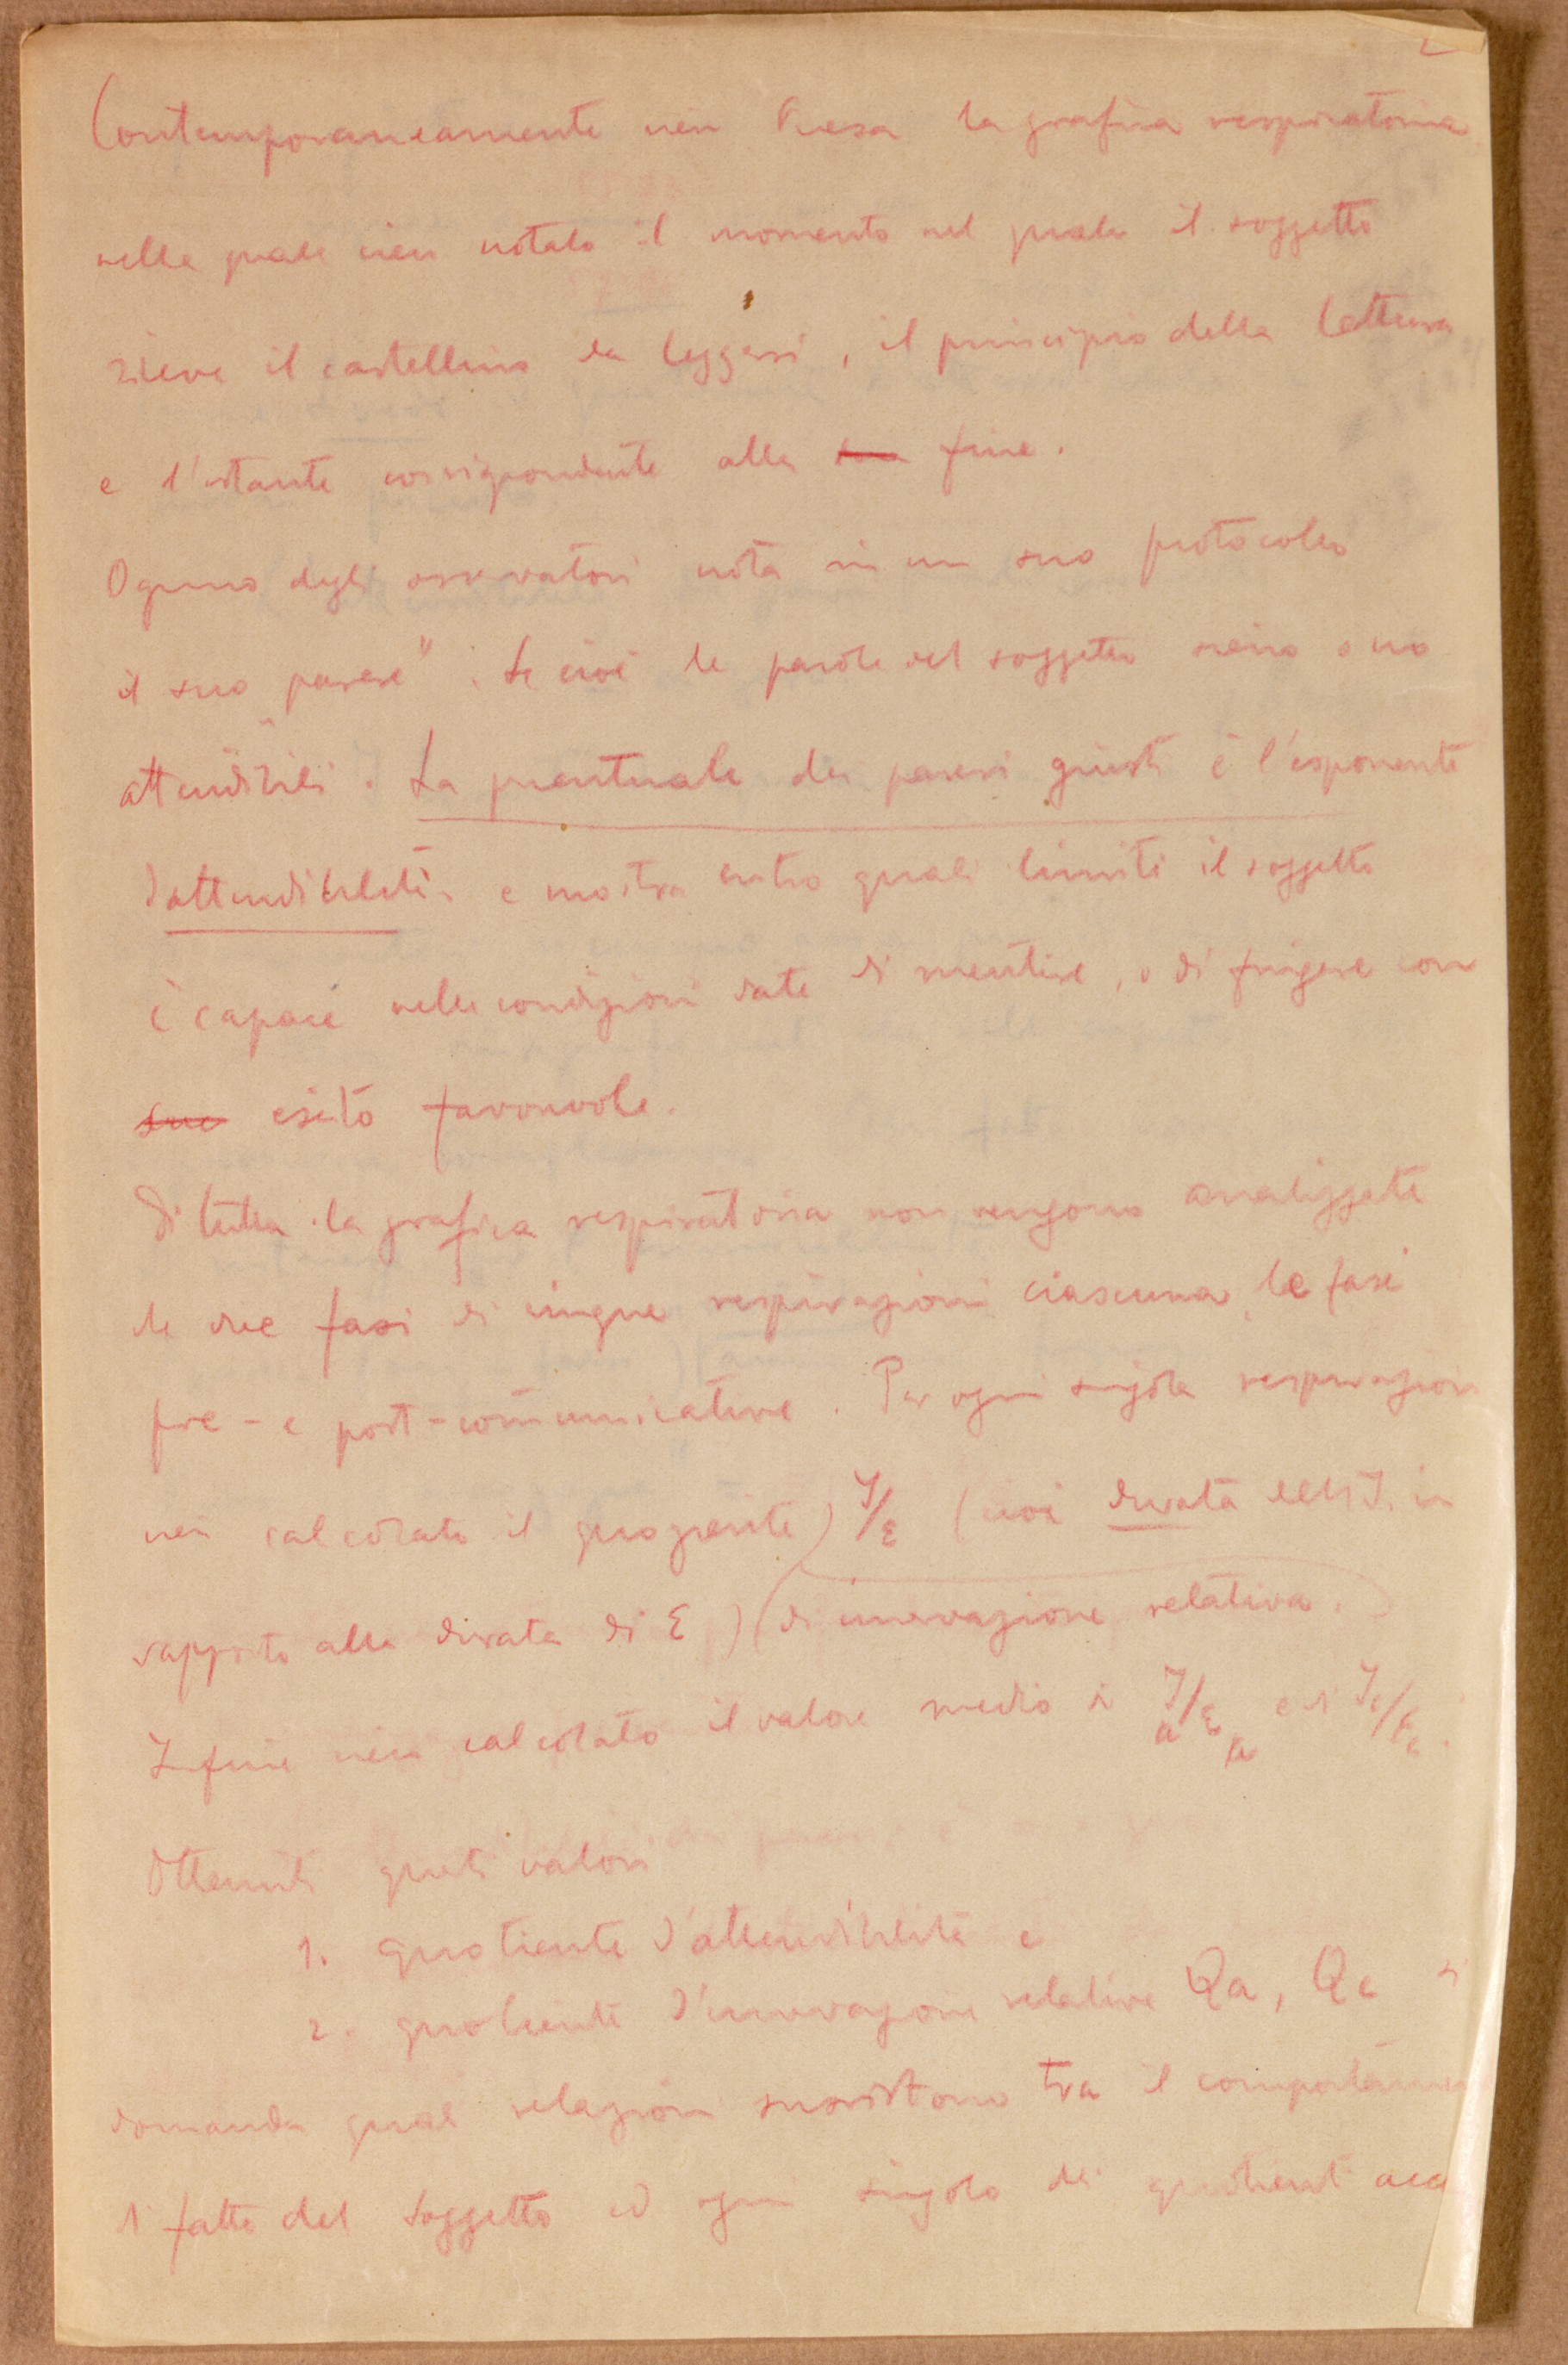 2
Contemporaneamente vien presa la grafica respiratoria
nella quale vien notato il momento nel quale il soggetto
riceve il cartellino da leggersi, il principio della lettura
e l'istante corrispondente alla sua fine.
Ognuno degli osservatori nota in un suo protocollo
il suo "parere": se cioè le parole del soggetto siano o no
attendibili. La percentuale dei pareri giusti è l'esponente
d'attendibilità e mostra entro quali limiti il soggetto
è capace nelle condizioni date di mentire, o di fingere con
suo esito favorevole.
Di tutta la grafica respiratoria non vengono analizzate
le due fasi di cinque respirazioni ciascuna, le fasi
pre- e post-comunicative. Per ogni singola respirazione
vien calcolato il quoziente I/E (cioè durata dell'I. in
rapporto alla durata di E) (di innervazione relativa.
Infine vien calcolato il valore medio di Ia/Ea e di Ic/Ec.
Ottenuti questi valori
1. quotiente d'attendibilità e
2. quotiente d'innervazione relativa Qa, Qc si
domanda quali relazioni sussistono tra il comportamen
di fatto del soggetto ed ogni singolo dei quotienti